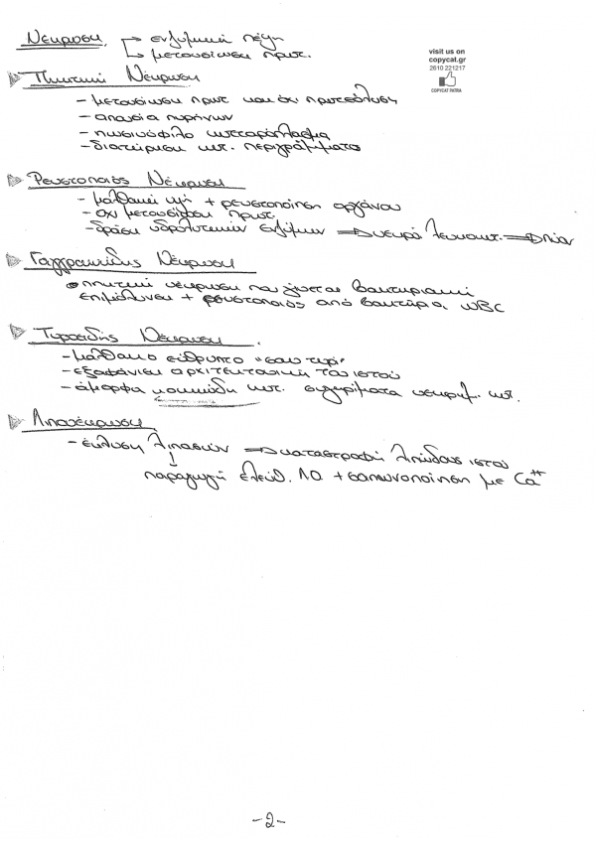 Νέκρωση → ενζυμική πέψη
→ μετουσίωση πρωτ.
visit us on
copycat.gr
2610 221217
COPYCAT PATRA
Πηκτική Νέκρωση
- μετουσίωση πρωτ και όχι πρωτεόλυση
- απουσία πυρήνων
- ηωσινόφιλο κυτταρόπλασμα
- διατήρηση κυτ. περιγράμματο
Ρευστοποιός Νέκρωση
- μαλθακή υφή + ρευστοποίηση οργάνου
- όχι μετουσίωση πρωτ.
- δράση υδρολυτικών ενζύμων ⇒ νεκρά λευκοκ. ⇒ Πύον
Γαγγραινώδης Νέκρωση
πηκτική νέκρωση που γίνεται βακτηριακή
επιμόλυνση + ρευστοποιός από βακτήρια, WBC
Τυροειδής Νέκρωση
- μαλθακό εύθρυπτο "σαν τυρί"
- εξαφάνιση αρχιτεκτονική του ιστού
- άμορφα κοκκιώδη κυτ. συγκρίματα νεκρωμ. κυτ.
Λιπονέκρωση
- έκλυση λιπασών ⇒ καταστροφή λιπώδους ιστού
↓
παραγωγή ελεύθ. ΛΟ + σαπωνοποίηση με Ca⁺⁺
-2-